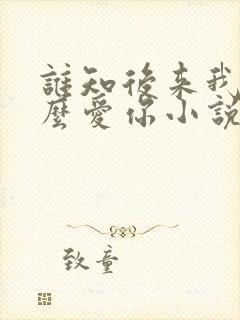 誰知後来我
麼愛你小說
致童